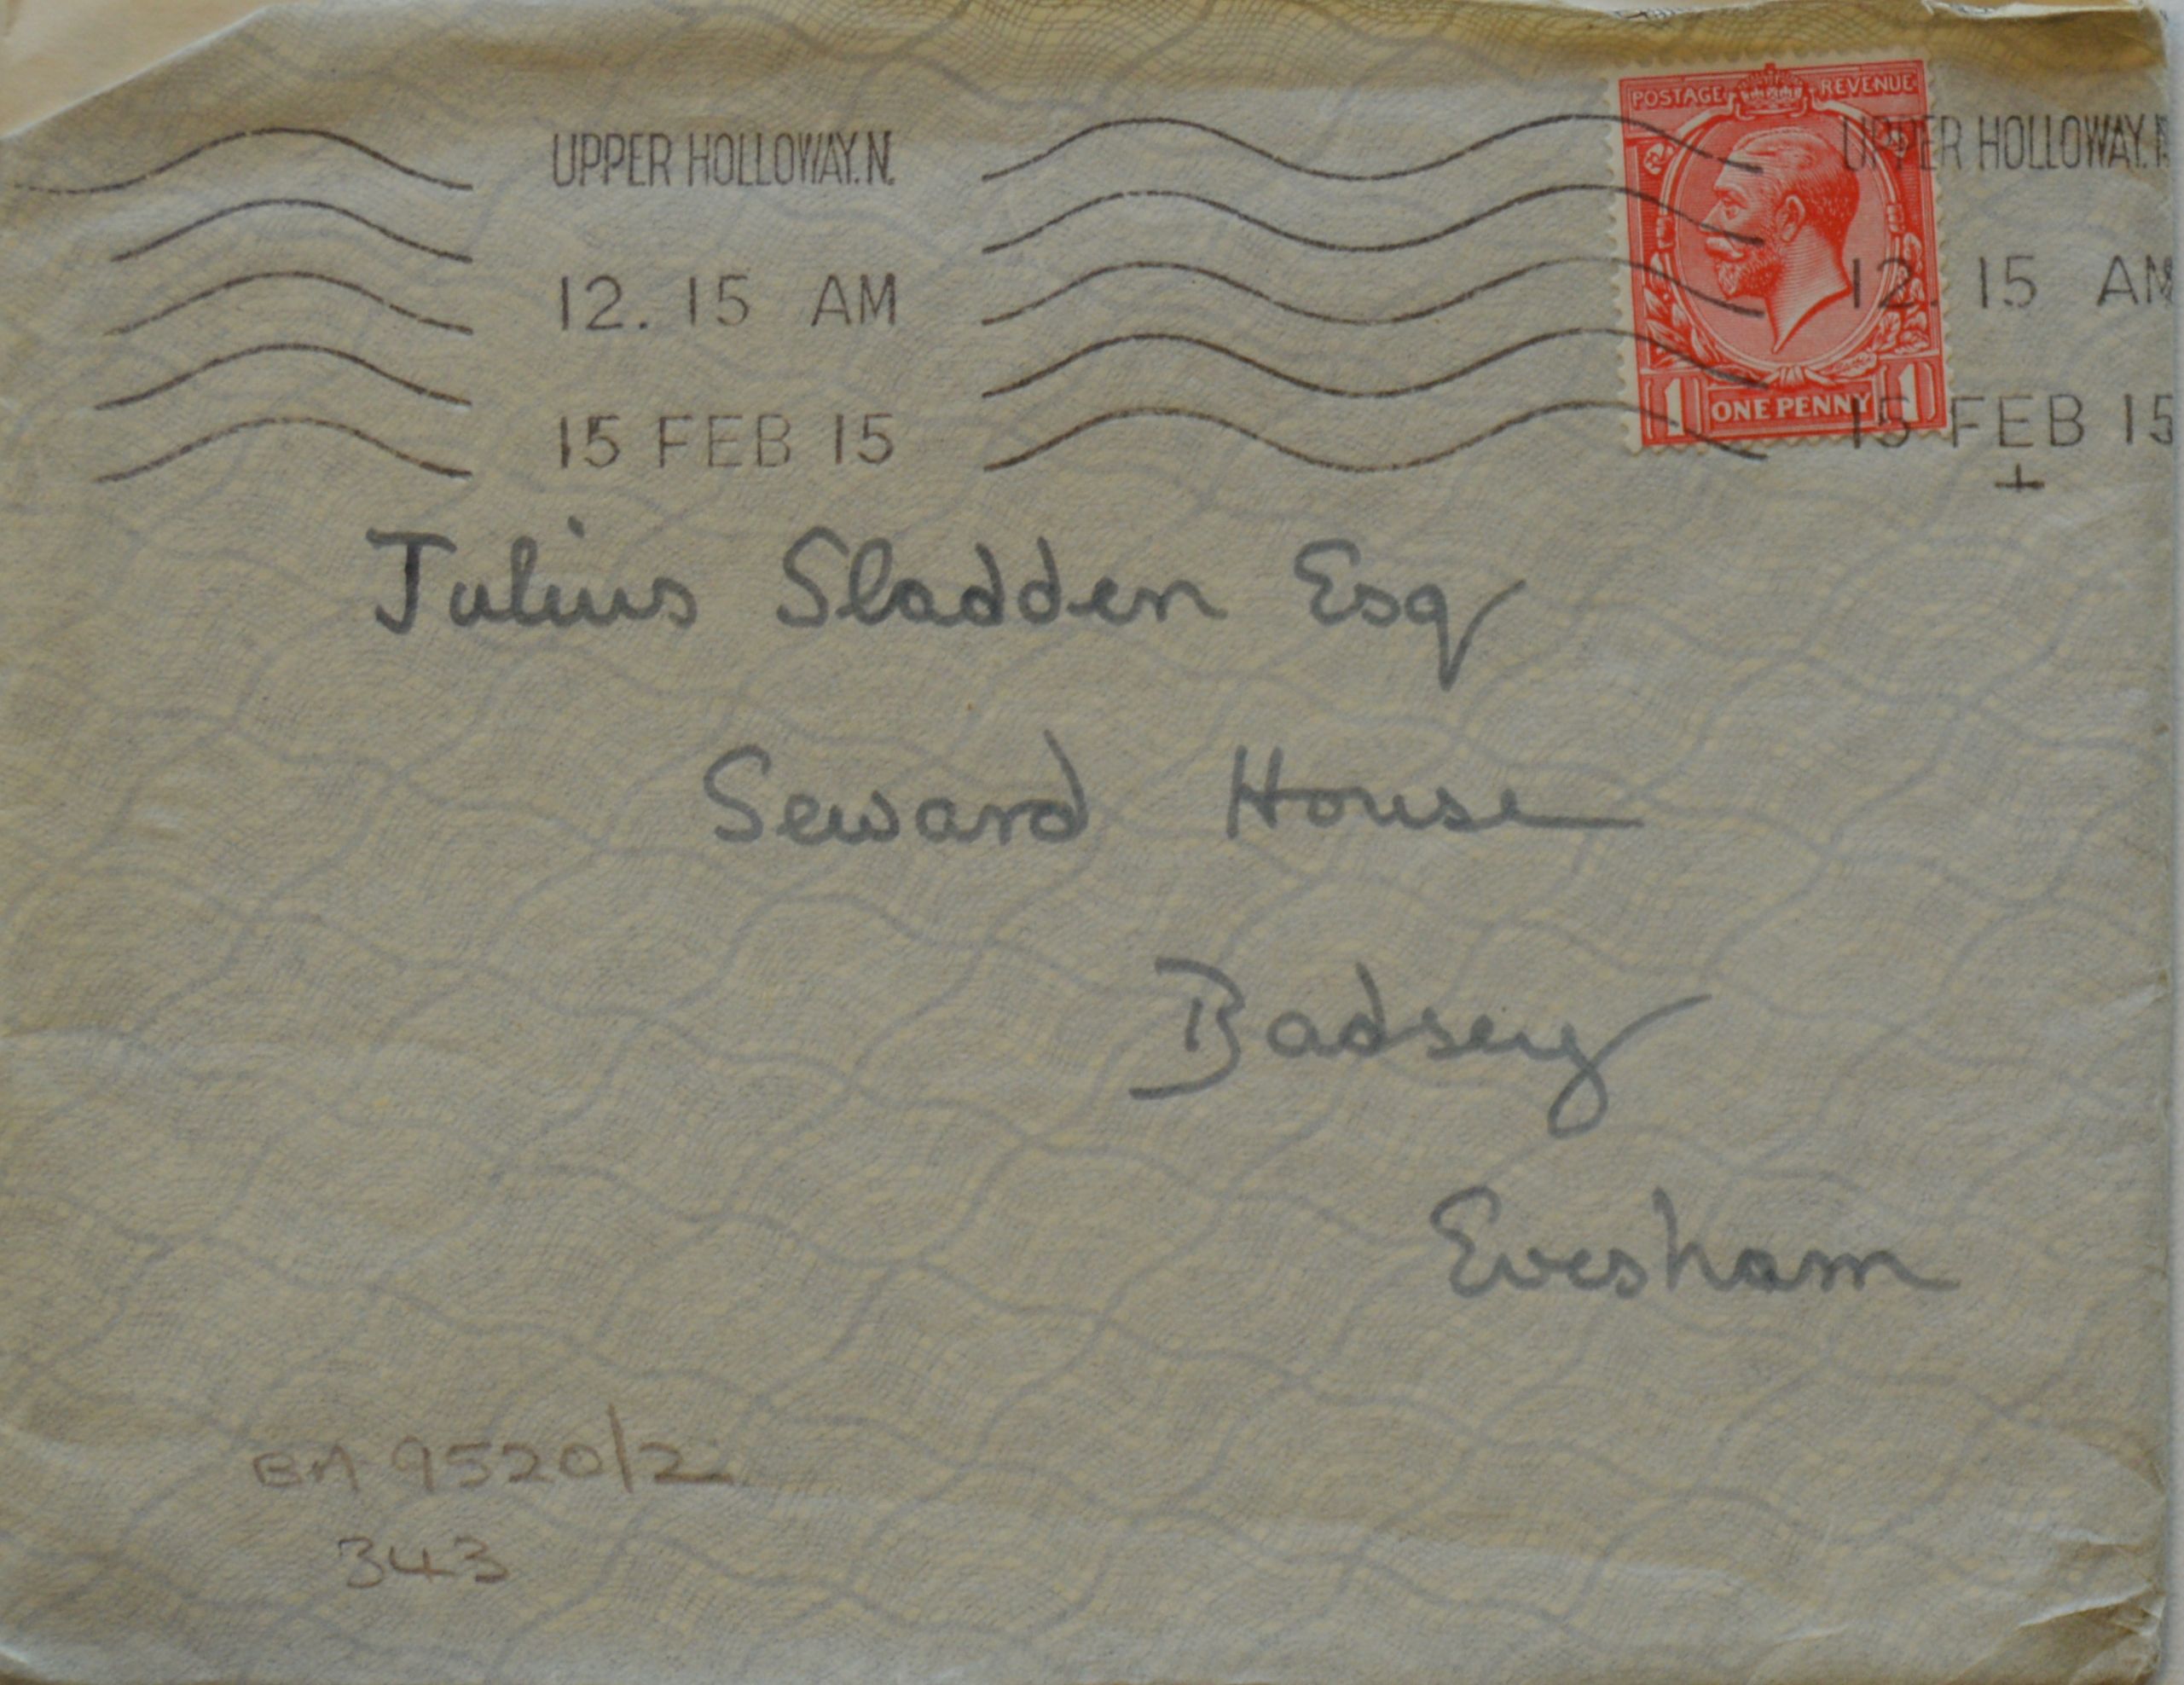 POSTAGE REVENUE
UPPER HOLLOWAY.N. UPPER HOLLOWAY.N
12. 15 AM 12. 15 AM
1 ONE PENNY 1
15 FEB 15 15 FEB 15
Julius Sladden Esq
Seward House
Badsey
Evesham
BA 9520/2
343